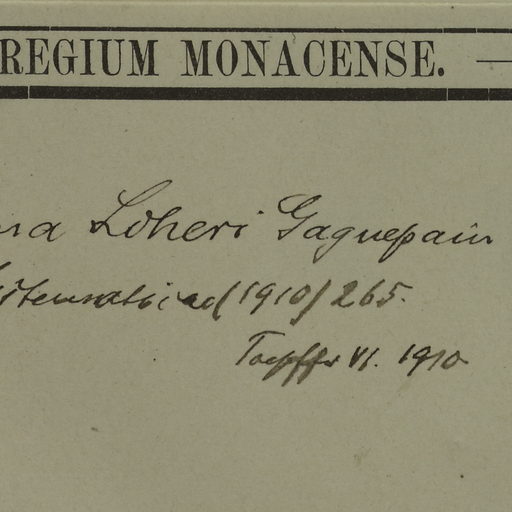 REGIUM MONACENSE.
na Loheri Gagnepain
(1910) 265.
Toepffer VI. 1910